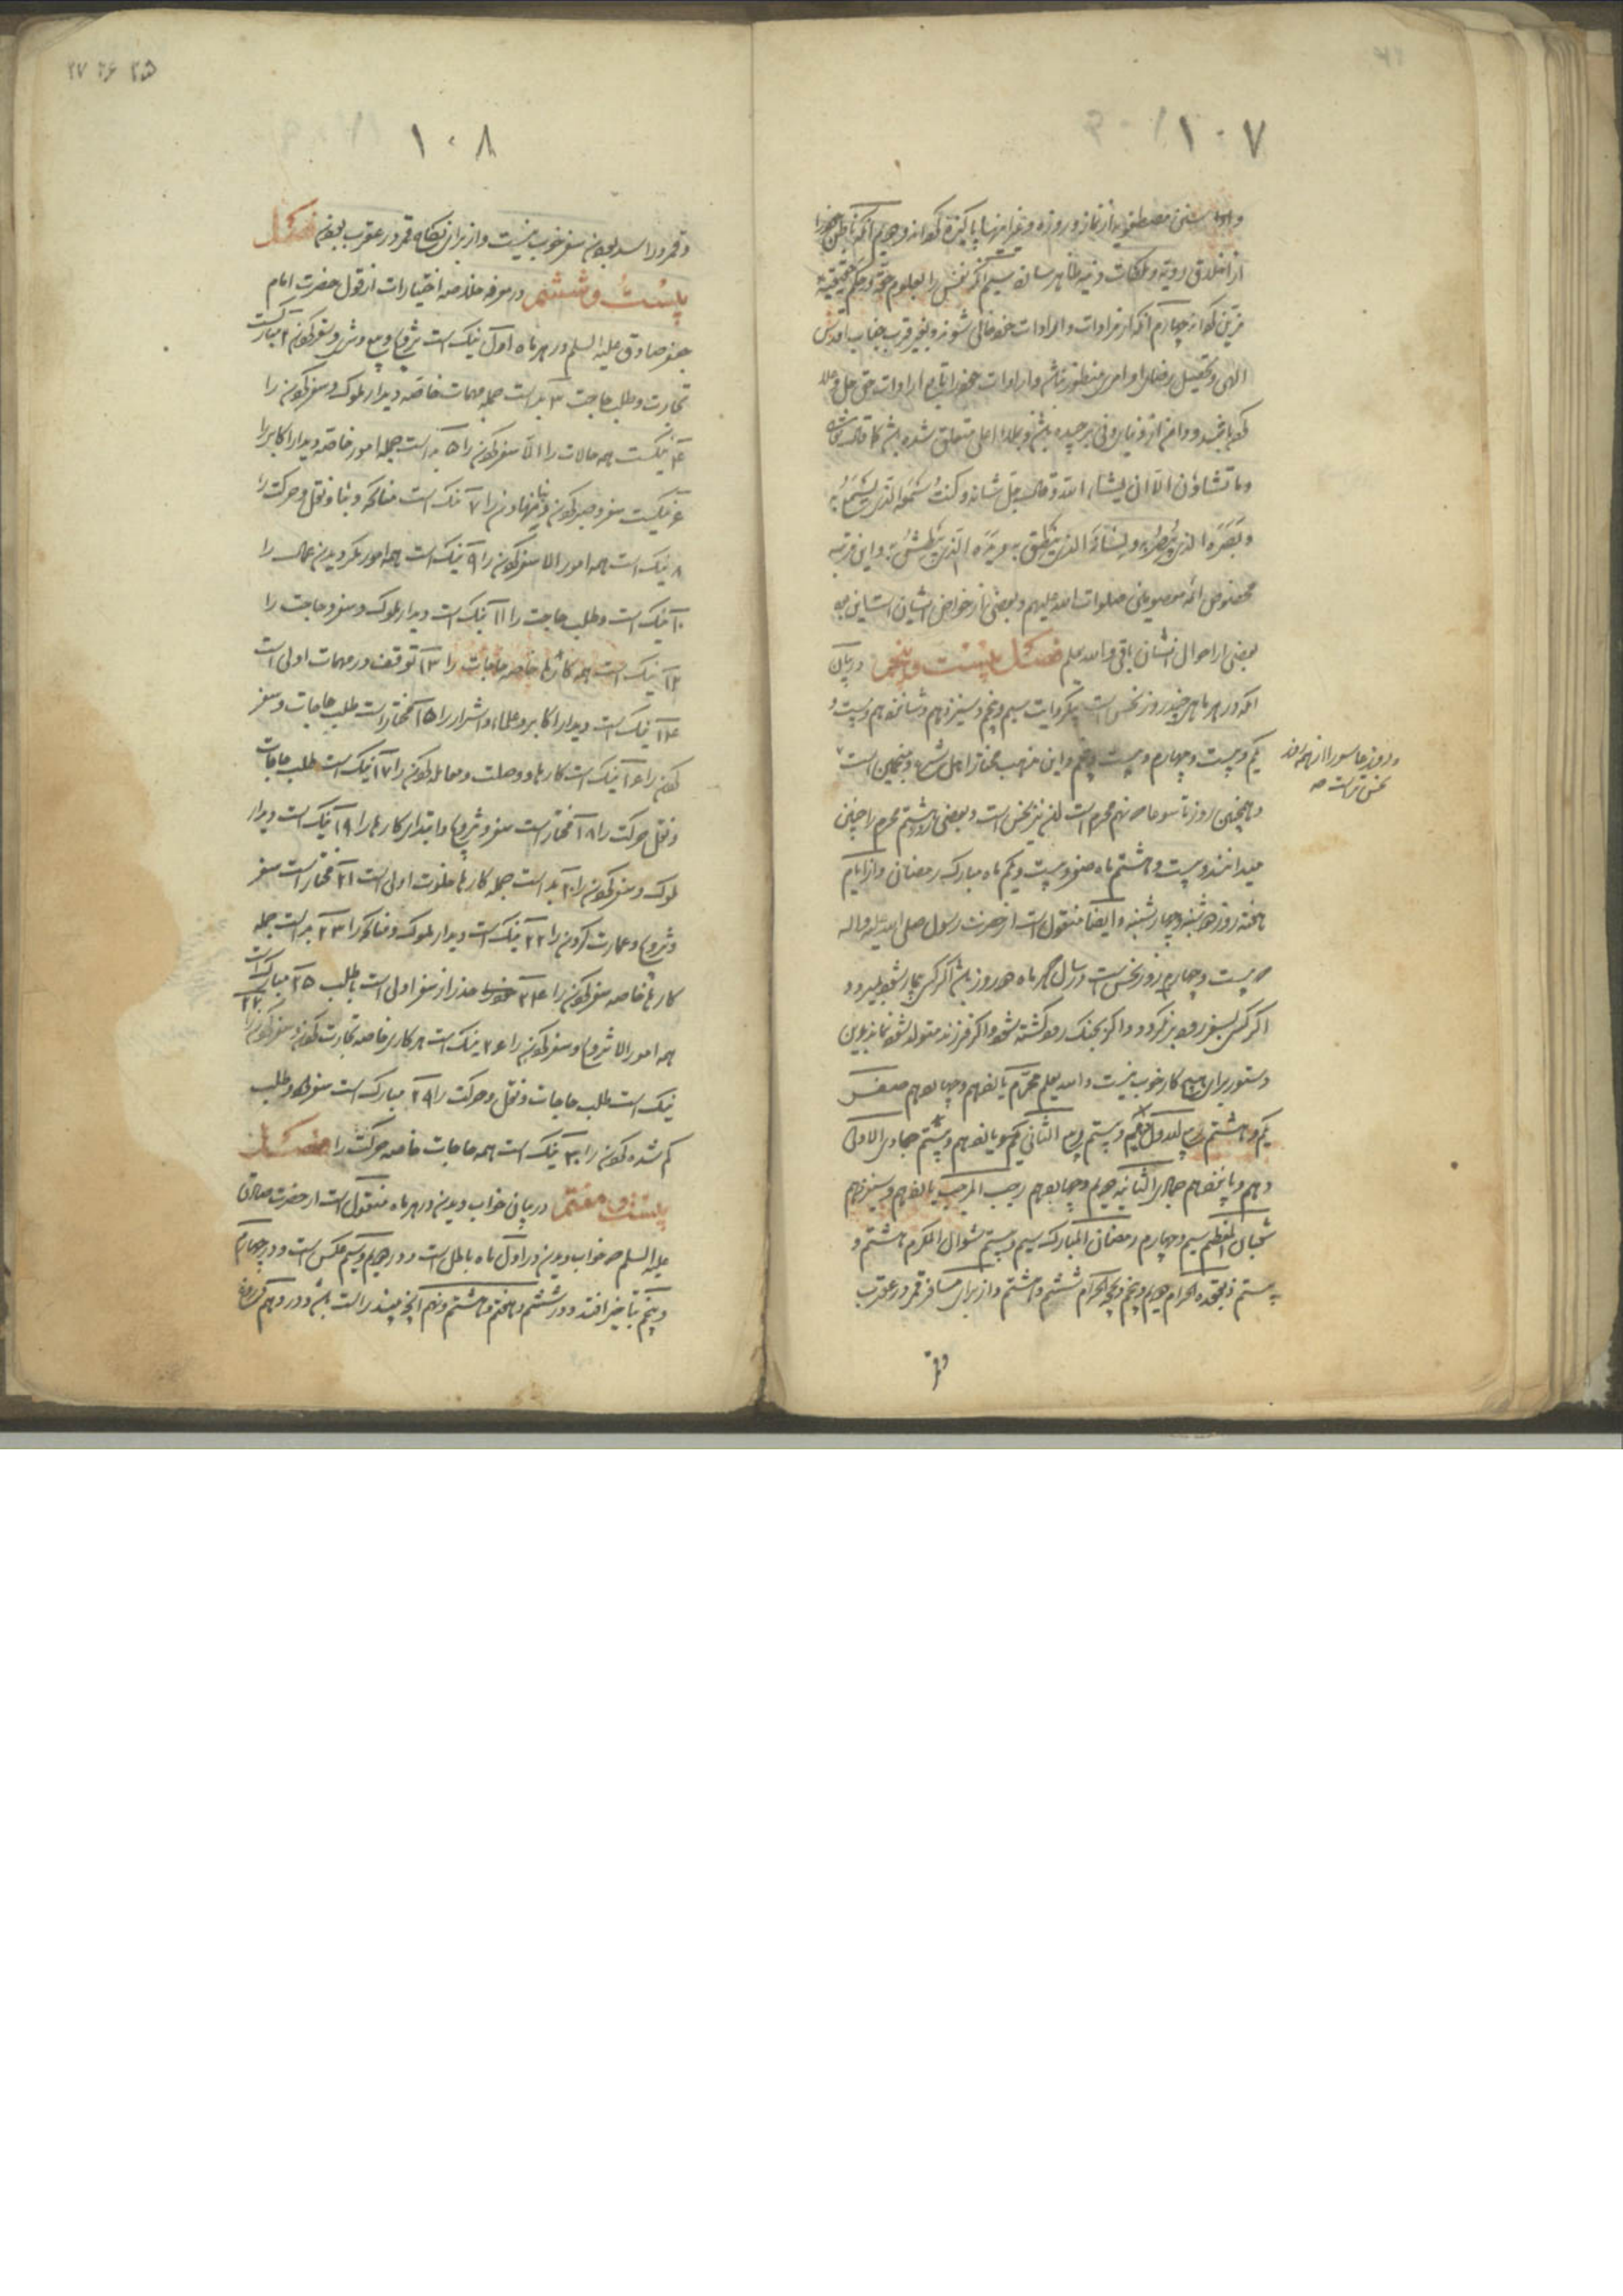 ۱۰۷
و اداء سنن مصطفویه از نماز و روزه و غیر اینها پاکیزه گرداند و دویم آنکه باطن خود را
از اخلاق ردیه و ملکات دنیه طاهر سازد سیم آنکه نفس را بعلوم حقه و حکم حقیقیه
مزین گرداند چهارم آنکه از مرادات و ارادات خود خالی شود و بغیر قرب جناب اقدس
الهی و تحصیل رضای او امری منظور نباشد و ارادات خود را تابع ارادات حق جل و علا
گرداند و دامن از دنیای دنی برچیده باشد و بملاء اعلی متعلق شده باشد کما قال
وما تشاؤن الا ان یشاء الله و قال جل شانه و کنت سمعه الذی یسمع به
و بصره الذی یبصر به و لسانه الذی ینطق به و یده الذی یبطش به و این مرتبه
مخصوص ائمه معصومین صلوات الله علیهم و بعضی از خواص ایشان است
بعضی از احوال انسان باقی والله یعلم فصل بیست و پنجم در بیان
آنکه در هر ماهی چند روز نحس است بیکروایت سیم و پنجم و سیزدهم و شانزدهم و بیست و
یکم و بیست و چهارم و بیست و پنجم و این مذهب مختار اهل شرع و منجمین است
و روز عاشورا از همه
نحس تر است صح
و همچنین روز تاسوعا که نهم محرم است نیز نحس است و بعضی هشتم محرم را چنین
میدانند و بیست و هشتم ماه صفر و بیست و یکم ماه مبارک رمضان و از ایام
هفته روز دوشنبه و چهارشنبه و ایضا منقول است از حضرت رسول صلی الله علیه و اله
که بیست و چهار روز نحس است در سال هر ماه دو روز باشد اگر کسی بیمار شود بمیرد و
اگر کسی بسفر رود برنگردد و اگر بجنگ رود کشته شود و اگر فرزند متولد شود نماند بدین
دستور برای هیچ کار خوب نیست والله یعلم محرم یازدهم و چهاردهم صفر
یکم و هشتم ربیع الاول دهم و بیستم ربیع الثانی یکم و یازدهم و بیستم جمادی الاولی
دهم و پانزدهم جمادی الثانیه دویم و چهاردهم رجب المرجب یازدهم و سیزدهم
شعبان المعظم سیم و چهارم رمضان المبارک سیم و بیستم شوال المکرم هشتم و
بیستم ذیقعده الحرام دویم و پنجم ذیحجه الحرام ششم و هشتم و از برای مسافر قمر در عقرب
و قمر
۲۵ ۲۶ ۲۷
۱۰۸
و قمر در اسد بودن سفر خوب نیست و از برای نکاح قمر در عقرب بودن فصل
بیست و ششم در معرفه خلاصه اختیارات از قول حضرت امام
جعفر صادق علیه السلم در هر ماه اول نیک است شروع و بیع و شری و سفر کردن ۲ مبارکست
تجارت و طلب حاجت ۳ بد است جمله مهمات خاصه دیدار ملوک و سفر کردن را
۴ نیکست همه حالات را الا سفر کردن را ۵ بد است جمله امور خاصه دیدار اکابر را
۶ نیکست سفر و صید کردن و بنا نهادن را ۷ نیک است مناکحه و بنا و نقل و حرکت را
۸ نیک است همه امور الا سفر کردن را ۹ نیک است همه امور مگر دیدن عمال را
۱۰ نیک است و طلب حاجت را ۱۱ نیک است دیدار ملوک و سفر و حاجت را
۱۲ نیک است همه کارها خاصه حاجات را ۱۳ توقف در مهمات اولی است
۱۴ نیک است دیدار اکابر و علماء و اشراف را ۱۵ مختار است طلب حاجات و سفر
کردن را ۱۶ نیک است کارها و وصلت و معامله کردن را ۱۷ نیک است طلب حاجات
و نقل حرکت را ۱۸ مختار است سفر و شروع و ابتداء کارها را ۱۹ نیک است دیدار
ملوک و سفر کردن را ۲۰ بد است جمله کارها خلوت اولی است ۲۱ مختار است سفر
و شروع و عمارت کردن را ۲۲ نیک است دیدار ملوک و مناکحه را ۲۳ بد است جمله
کارها خاصه سفر کردن را ۲۴ حذر از سفر اولی است ۲۵ مبارک است
همه امور الا شروع و سفر کردن را ۲۶ نیک است هر کار خاصه تجارت کردن و سفر کردن را ۲۷
نیک است طلب حاجات و نقل و حرکت را ۲۹ مبارک است سفر و طلب
گم شده کردن را ۳۰ نیک است همه حاجات خاصه حرکت را فصل
بیست و هفتم در بیان خواب دیدن در هر ماه منقول است از حضرت صادق
علیه السلم که خواب دیدن در اول ماه باطل است و در دویم و سیم عکس است و در چهارم
و پنجم بتاخیر افتد و در ششم و هفتم و هشتم و نهم آنچه بیند راست باشد و در دهم